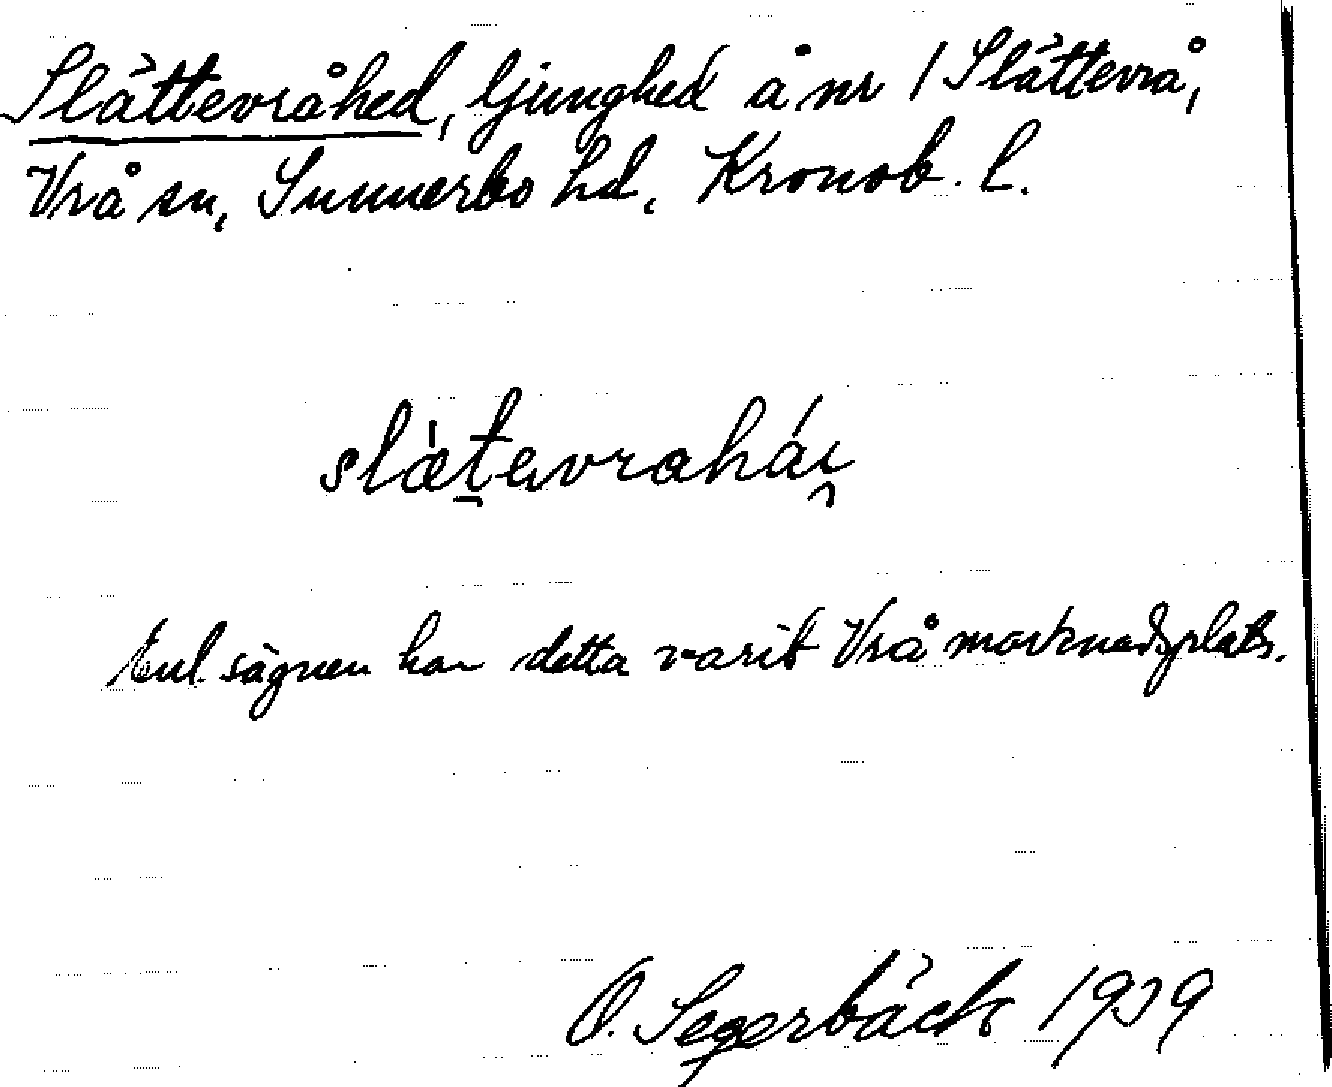 Slättevråhed, ljunghed å nr 1 Slättevrå,
Vrå sn, Sunnerbo hd, Kronob. l.
slætevrahái
Enl. sägnen har detta varit Vrå marknadsplats.
O. Segerbäck 1939